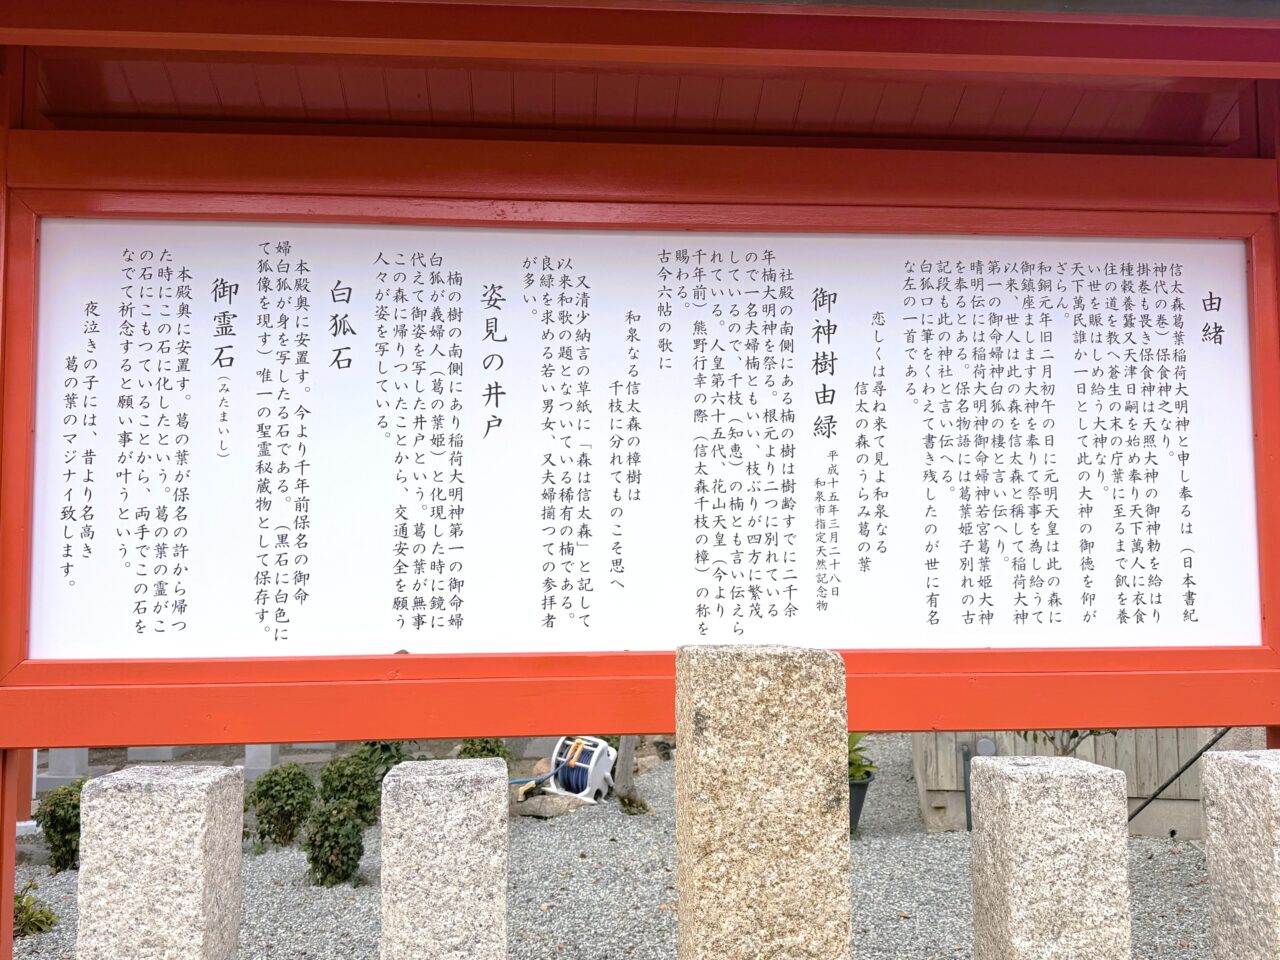 由緒
信太森葛葉稲荷大明神と申し奉るは（日本書紀
神代の巻）保食神之なり。
掛巻も畏き保食神は天照大神の御神勅を給はり
種穀養蚕又天津日嗣を始め奉り天下萬人に衣食
住の道を教へ蒼生の末の庁葉に至るまで飢を養
い世を賑はしめ給う大神なり。
天下萬民誰か一日として此の大神の御徳を仰が
ざらん。
和銅元年旧二月初午の日に元明天皇は此の森に
御鎮座まします大神を奉りて祭事を為し給うて
以来、世人は此の森を信太森と称して稲荷大神
第一の御命婦神白狐の棲と言い伝へり。
晴明伝には稲荷大明神御命婦神若宮葛葉姫大神
を奉るとある。保名物語には葛葉姫子別れの古
記段も此の神社と言い伝へる。
白狐口に筆をくわえて書き残したのが世に有名
な左の一首である。
恋しくは尋ね来て見よ和泉なる
信太の森のうらみ葛の葉
御神樹由緑
平成十五年三月二十八日
和泉市指定天然記念物
社殿の南側にある楠の樹は樹齢すでに二千余
年楠大明神を祭る。根元より二つに別れている
ので一名夫婦楠ともいい、枝ぶりが四方に繁茂
しているので、千枝（知恵）の楠とも言い伝えら
れている。人皇第六十五代、花山天皇（今より
千年前）熊野行幸の際（信太森千枝の樟）の称を
賜わる。
古今六帖の歌に
和泉なる信太森の樟樹は
千枝に分れてものこそ思へ
又清少納言の草紙に「森は信太森」と記して
以来和歌の題となついている稀有の楠である。
良緑を求める若い男女、又夫婦揃つての参拝者
が多い。
姿見の井戸
楠の樹の南側にあり稲荷大明神第一の御命婦
白狐が義婦人（葛の葉姫）と化現した時に鏡に
代えて御姿を写した井戸という。葛の葉が無事
この森に帰りついたことから、交通安全を願う
人々が姿を写している。
白狐石
本殿奥に安置す。今より千年前保名の御命
婦白狐が身を写したる石である。（黒石に白色に
て狐像を現す）唯一の聖霊秘蔵物として保存す。
御霊石（みたまいし）
本殿奥に安置す。葛の葉が保名の許から帰つ
た時にこの石に化したという。葛の葉の霊がこ
の石にこもつていることから、両手でこの石を
なでて祈念すると願い事が叶うという。
夜泣きの子には、昔より名高き
葛の葉のマジナイ致します。